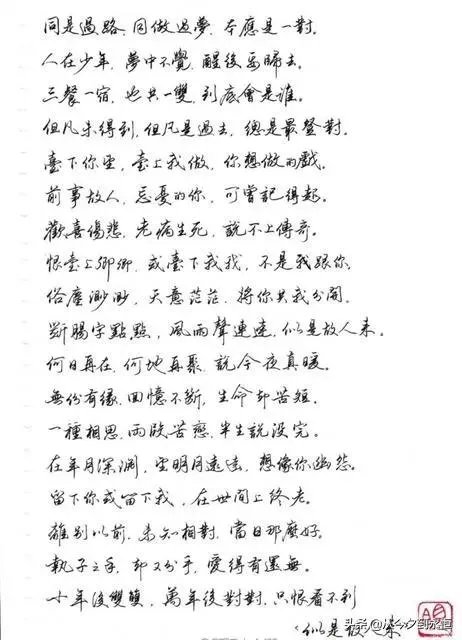 同是過路、同做過夢、本應是一對。
人在少年、夢中不覺、醒後要歸去。
三餐一宿、也共一雙、到底會是誰。
但凡未得到、但凡是過去、總是最登對。
臺下你望、臺上我做、你想做的戲。
前事故人、忘憂的你、可曾記得起。
歡喜傷悲、老病生死、說不上傳奇。
恨臺上卿卿、或臺下我我、不是我跟你。
俗塵渺渺、天意茫茫、將你共我分開。
斷腸字點點、風雨聲連連、似是故人來。
何日再在、何地再聚、說今夜真暖。
無份有緣、回憶不斷、生命卻苦短。
一種相思、兩段苦戀、半生說沒完。
在年月深淵、望明月遠遠、想像你幽怨。
留下你或留下我、在世間上終老。
離別以前、未知相對、當日那麼好。
執子之手、卻又分手、愛得有還無。
十年後雙雙、萬年後對對、只恨看不到
似是故 來
头条@从今夕到永恒